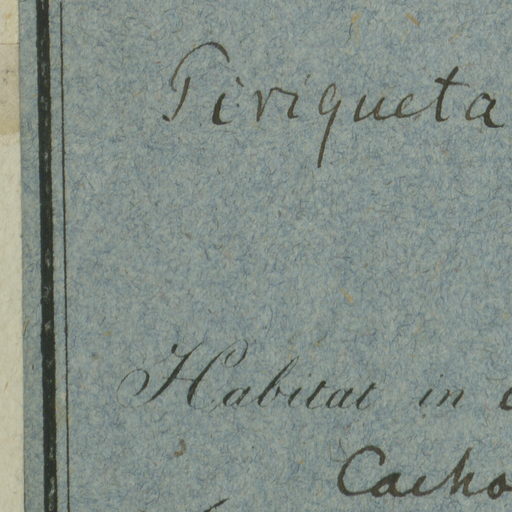 Piriqueta
Habitat in
Cacho